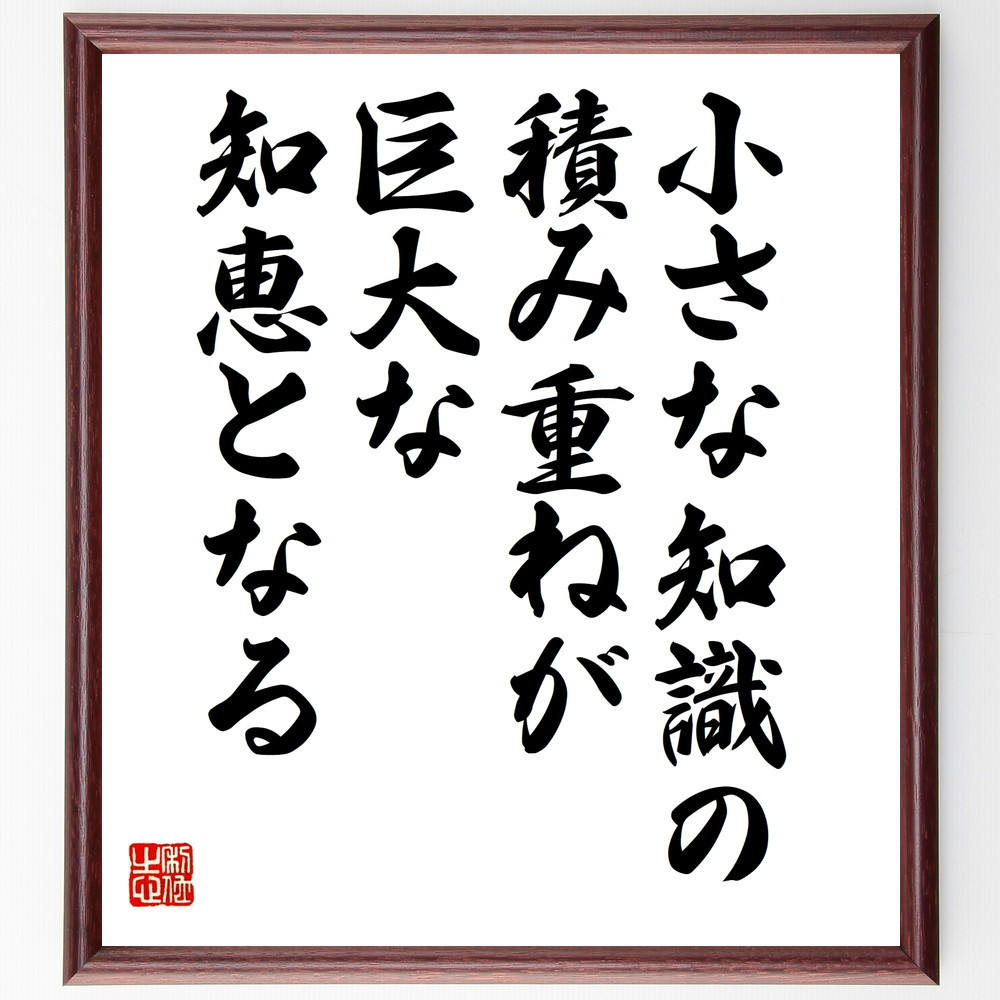 小さな知識の
積み重ねが
巨大な
知恵となる